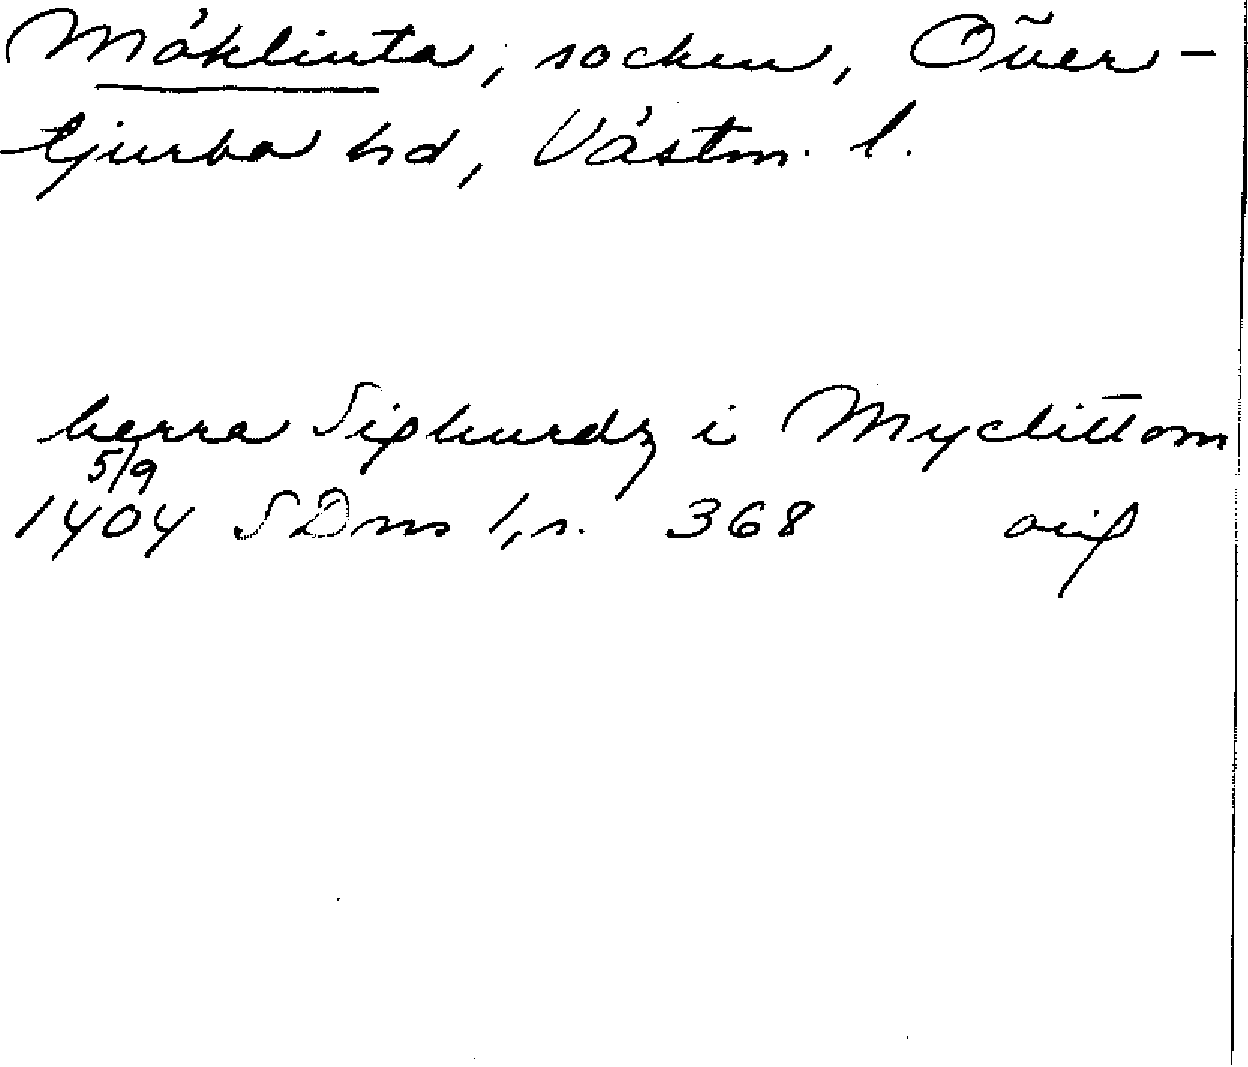 Möklinta, socken, Över-
tjurbo hd, Västm. l.
herra Sighurdz i Myclittom
5/9
1404 SDns 1, s. 368 avs